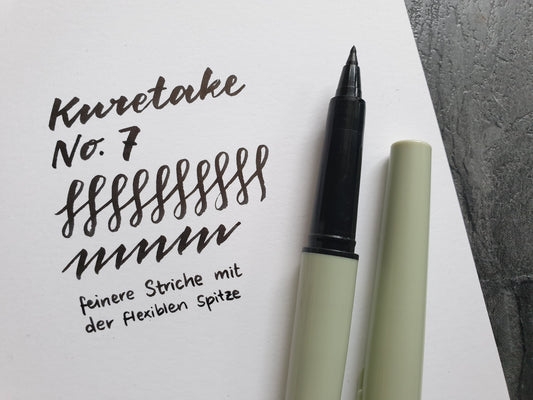 Kuretake
No. 7
feinere Striche mit
der flexiblen Spitze